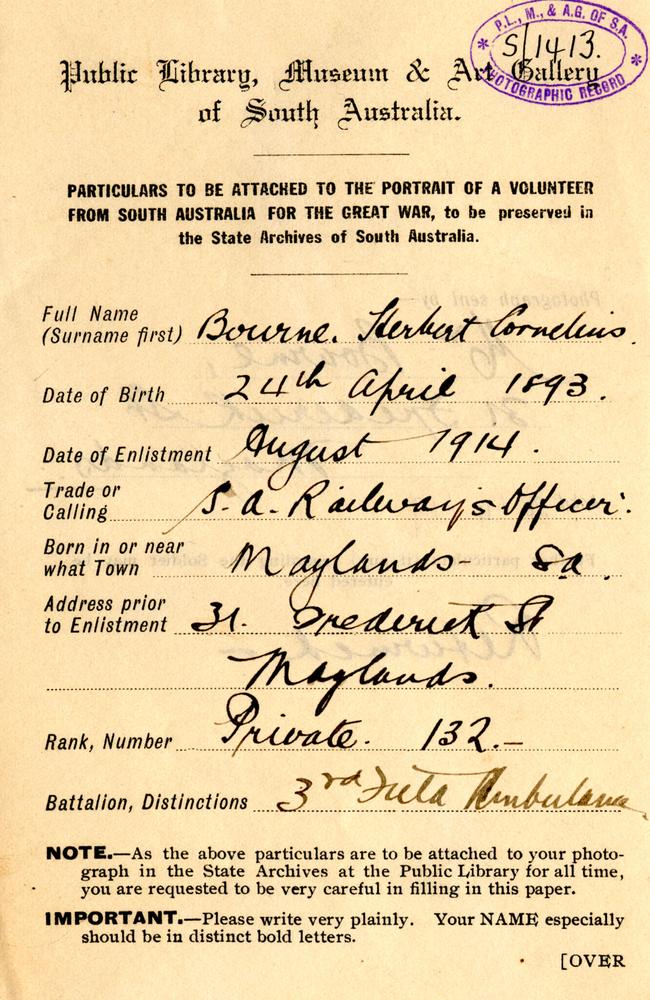 P.L., M., & A.G. OF S.A.
S/1413.
PHOTOGRAPHIC RECORD
Public Library, Museum & Art Gallery
of South Australia.
PARTICULARS TO BE ATTACHED TO THE PORTRAIT OF A VOLUNTEER
FROM SOUTH AUSTRALIA FOR THE GREAT WAR, to be preserved in
the State Archives of South Australia.
Full Name
(Surname first) Bourne. Herbert Cornelius.
Date of Birth 24th April 1893.
Date of Enlistment August 1914.
Trade or
Calling S. A. Railways Officer.
Born in or near
what Town Maylands - Sa.
Address prior
to Enlistment 31. Frederick St
Maylands.
Rank, Number Private. 132.-
Battalion, Distinctions 3rd Field Ambulance
NOTE.—As the above particulars are to be attached to your photo-
graph in the State Archives at the Public Library for all time,
you are requested to be very careful in filling in this paper.
IMPORTANT.—Please write very plainly. Your NAME especially
should be in distinct bold letters.
[OVER